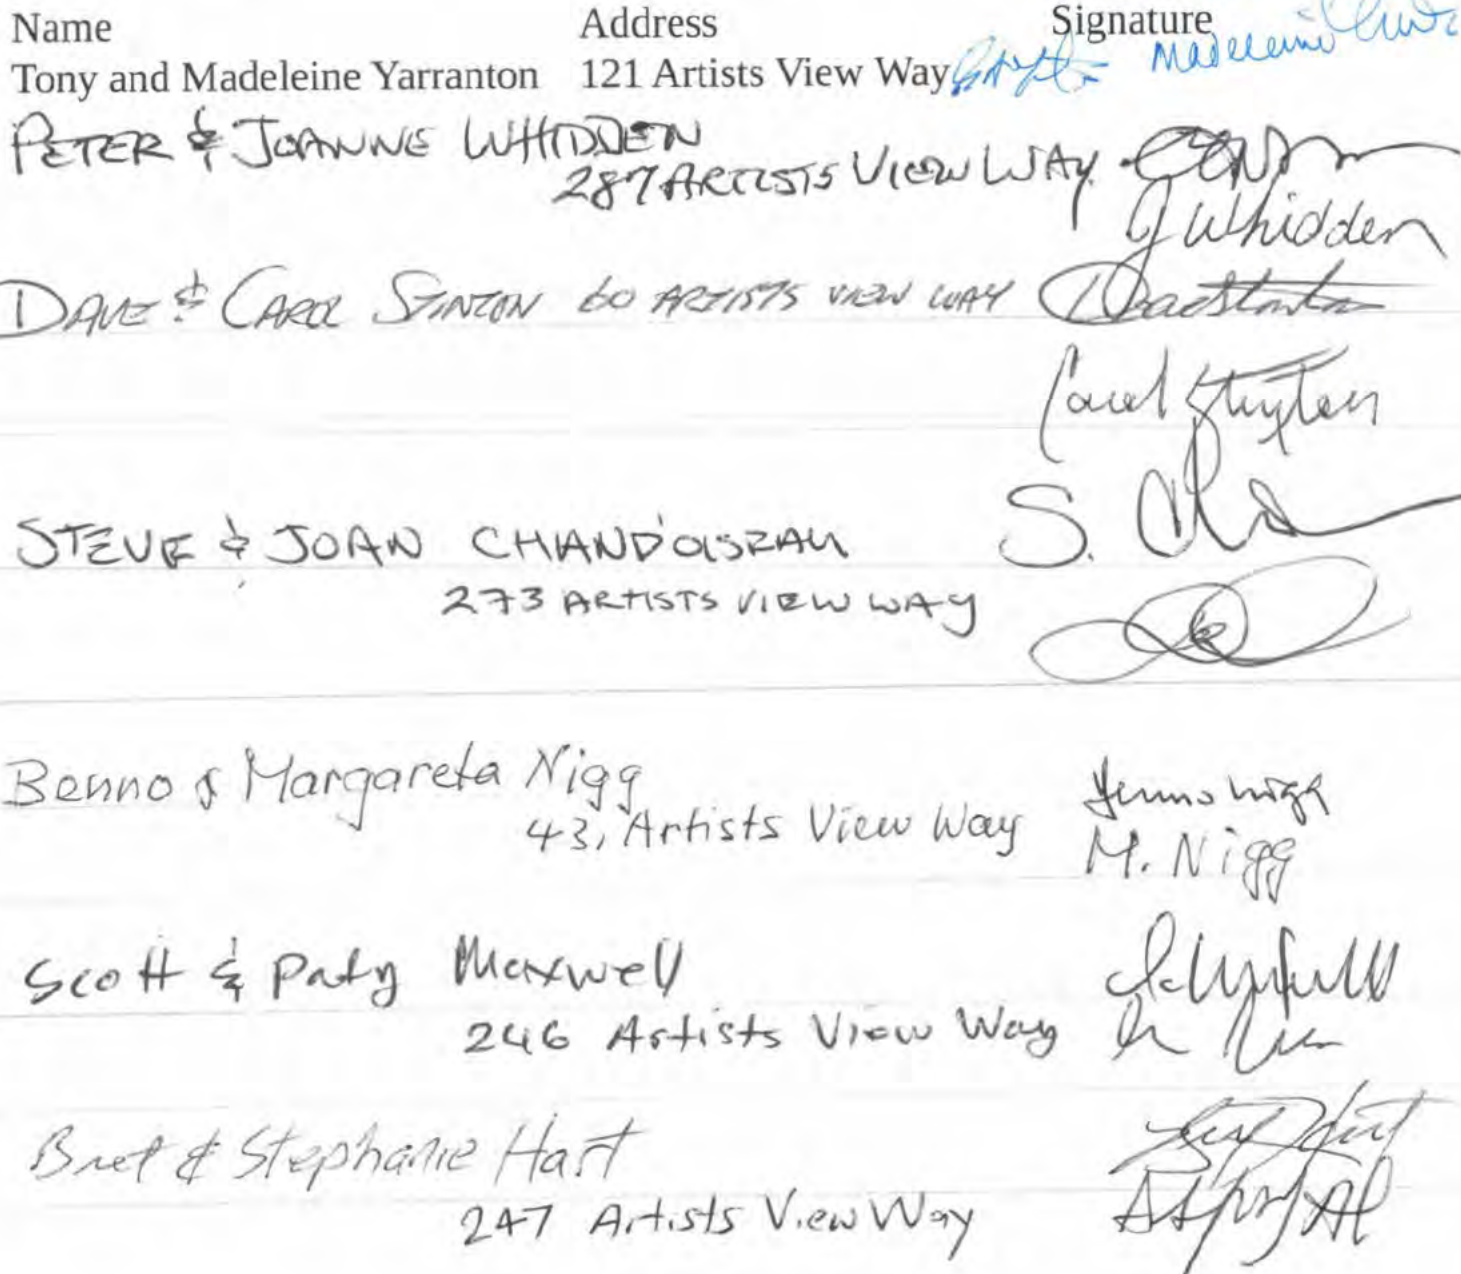 Name Address Signature
Tony and Madeleine Yarranton 121 Artists View Way Madeleine
PETER & JOANNE WHIDDEN
287 ARTISTS VIEW WAY
J Whidden
DAVE & CAROL STINTON 60 ARTISTS VIEW WAY
Carol
STEVE & JOAN
S.
273 ARTISTS VIEW WAY
Benno & Margareta Nigg
43, Artists View Way Benno Nigg
M. Nigg
Scott & Paty Maxwell
246 Artists View Way
Bret & Stephanie Hart
247 Artists View Way